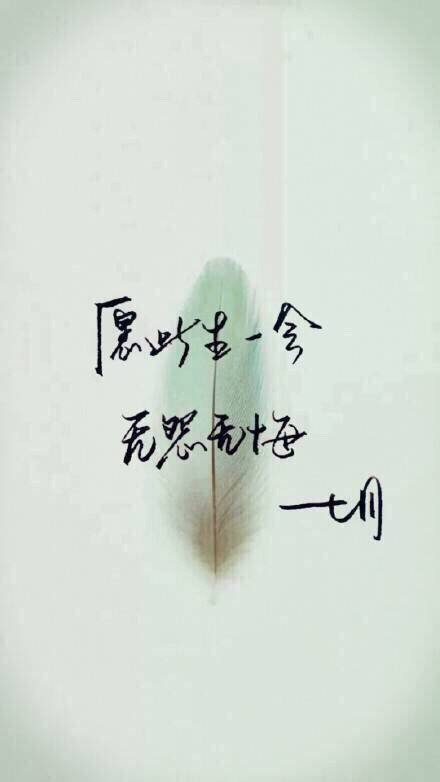 愿此生一会
无怨无悔
——七月